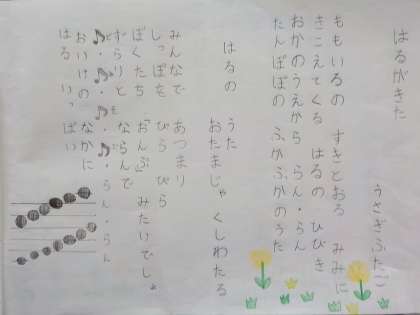 はるがきた
うさぎふたご
ももいろの すきとおる みみに
きこえてくる はるの ひびき
おかのうえから らん・らん
たんぽぽの ふかふかのうた
はるの うた
おたまじゃくしわたる
みんなで あつまり
しっぽを ぴら ぴら
ぼくたち 「おんぷ」 みたいでしょ
ずらりと ならんで
・ ・ ・ らん・らん
おいけの なかに
はる いっぱい